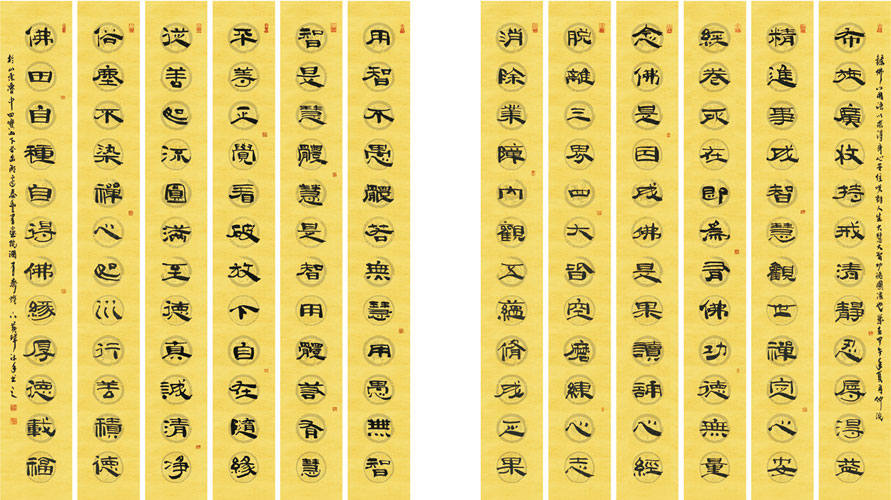 布施廣收持戒清靜忍辱得益
精進事成智慧觀世禪定心安
經卷所在即為有佛功德無量
念佛是因成佛是果讀誦心經
脫離三界四大皆空磨練心志
消除業障內觀五蘊脩成正果
用智不愚體若無慧用愚無智
智是慧體慧是智用體若有慧
平等正覺看破放下自在隨緣
從善如流圓滿至德真誠清净
俗塵不染禪心如水行善積德
佛田自種自得佛緣厚德載福